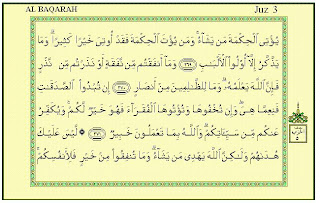 AL BAQARAH Juz 3
يُؤْتِى ٱلْحِكْمَةَ مَن يَشَآءُ ۚ وَمَن يُؤْتَ ٱلْحِكْمَةَ فَقَدْ أُوتِىَ خَيْرًا كَثِيرًا ۗ وَمَا
يَذَّكَّرُ إِلَّآ أُو۟لُوا۟ ٱلْأَلْبَـٰبِ ﴿٢٦٩﴾ وَمَآ أَنفَقْتُم مِّن نَّفَقَةٍ أَوْ نَذَرْتُم مِّن نَّذْرٍ
فَإِنَّ ٱللَّهَ يَعْلَمُهُۥ ۗ وَمَا لِلظَّـٰلِمِينَ مِنْ أَنصَارٍ ﴿٢٧٠﴾ إِن تُبْدُوا۟ ٱلصَّدَقَـٰتِ
فَنِعِمَّا هِىَ ۖ وَإِن تُخْفُوهَا وَتُؤْتُوهَا ٱلْفُقَرَآءَ فَهُوَ خَيْرٌ لَّكُمْ ۚ وَيُكَفِّرُ
عَنكُم مِّن سَيِّـَٔاتِكُمْ ۗ وَٱللَّهُ بِمَا تَعْمَلُونَ خَبِيرٌ ﴿٢٧١﴾ ۞ لَّيْسَ عَلَيْكَ
هُدَىٰهُمْ وَلَـٰكِنَّ ٱللَّهَ يَهْدِى مَن يَشَآءُ ۗ وَمَا تُنفِقُوا۟ مِنْ خَيْرٍ فَلِأَنفُسِكُمْ ۚ